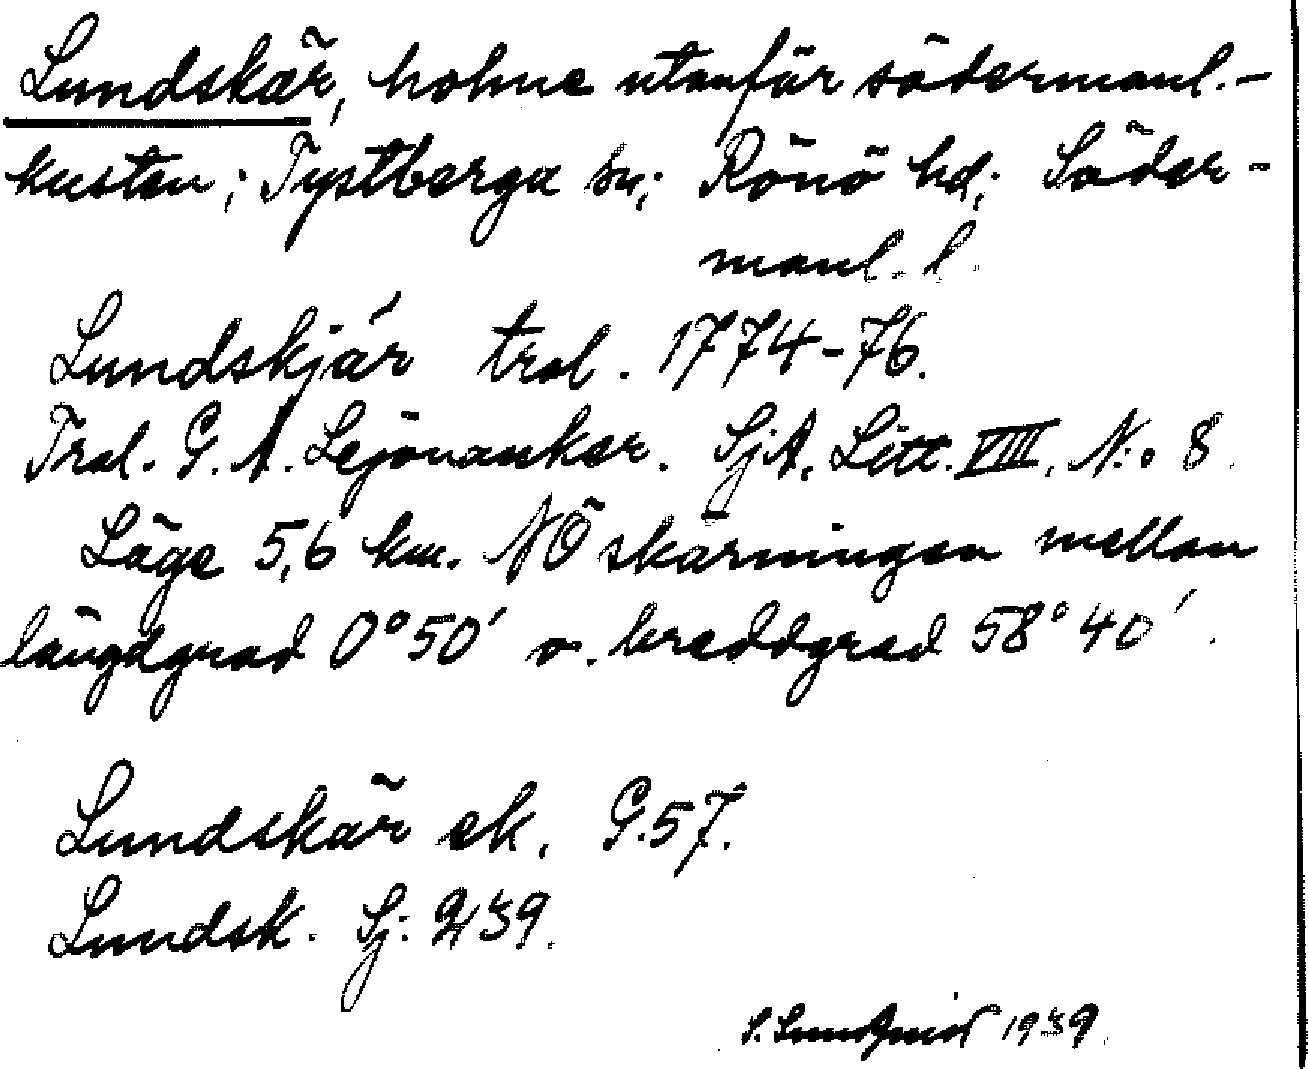 Lundskär, holme utanför södermanl.-
kusten; Tystberga sn; Rönö hd; Söder-
manl. l.
Lundskjär trol. 1774-76.
Trol. G. A. Lejonanker. SjA. Litt. VIII. N:o 8.
Läge 5,6 km. NÖ skärningen mellan
längdgrad 0°50' o. breddgrad 58°40'.
Lundskär ek. G.57.
Lundsk. Sj: 239.
S. Lundqvist 1939